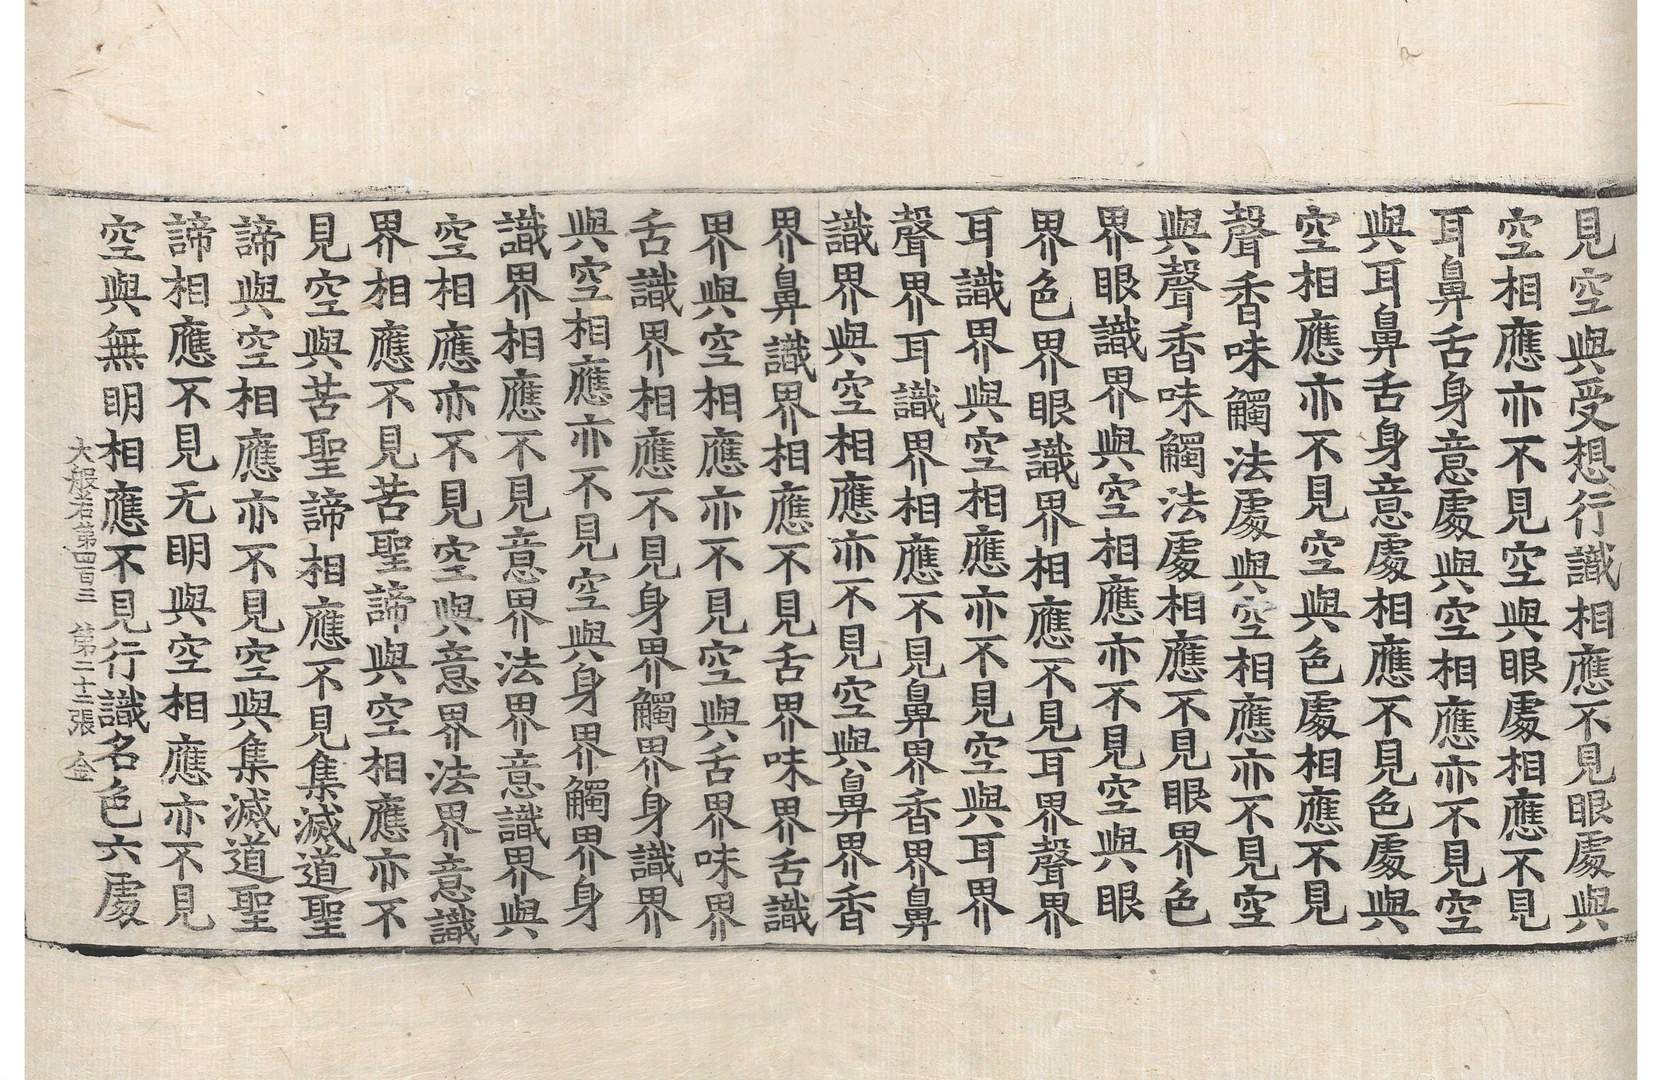 見空與受想行識相應不見眼處與
空相應亦不見空與眼處相應不見
耳鼻舌身意處與空相應亦不見空
與耳鼻舌身意處相應不見色處與
空相應亦不見空與色處相應不見
聲香味觸法處與空相應亦不見空
與聲香味觸法處相應不見眼界色
界眼識界與空相應亦不見空與眼
界色界眼識界相應不見耳界聲界
耳識界與空相應亦不見空與耳界
聲界耳識界相應不見鼻界香界鼻
識界與空相應亦不見空與鼻界香
界鼻識界相應不見舌界味界舌識
界與空相應亦不見空與舌界味界
舌識界相應不見身界觸界身識界
與空相應亦不見空與身界觸界身
識界相應不見意界法界意識界與
空相應亦不見空與意界法界意識
界相應不見苦聖諦與空相應亦不
見空與苦聖諦相應不見集滅道聖
諦與空相應亦不見空與集滅道聖
諦相應不見无明與空相應亦不見
空與無明相應不見行識名色六處
大般若第四百三 第二十三張 金